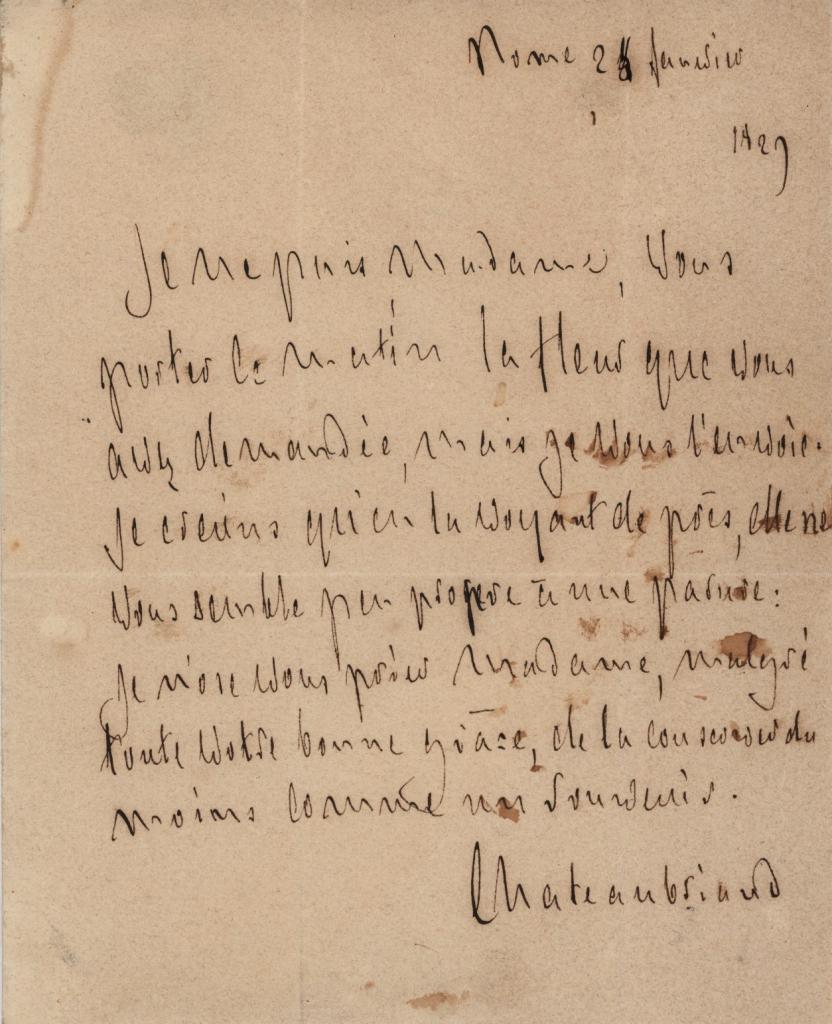 Rome 28 janvier
1829
Je ne puis Madame, vous
porter ce matin la fleur que vous
avez demandée, mais je vous l'envoie.
Je crains qu'en la voyant de près, elle ne
vous semble peu propre à une parure:
Je n'ose vous prier Madame, malgré
toute votre bonne grâce, de la conserver du
moins comme un souvenir.
Chateaubriand